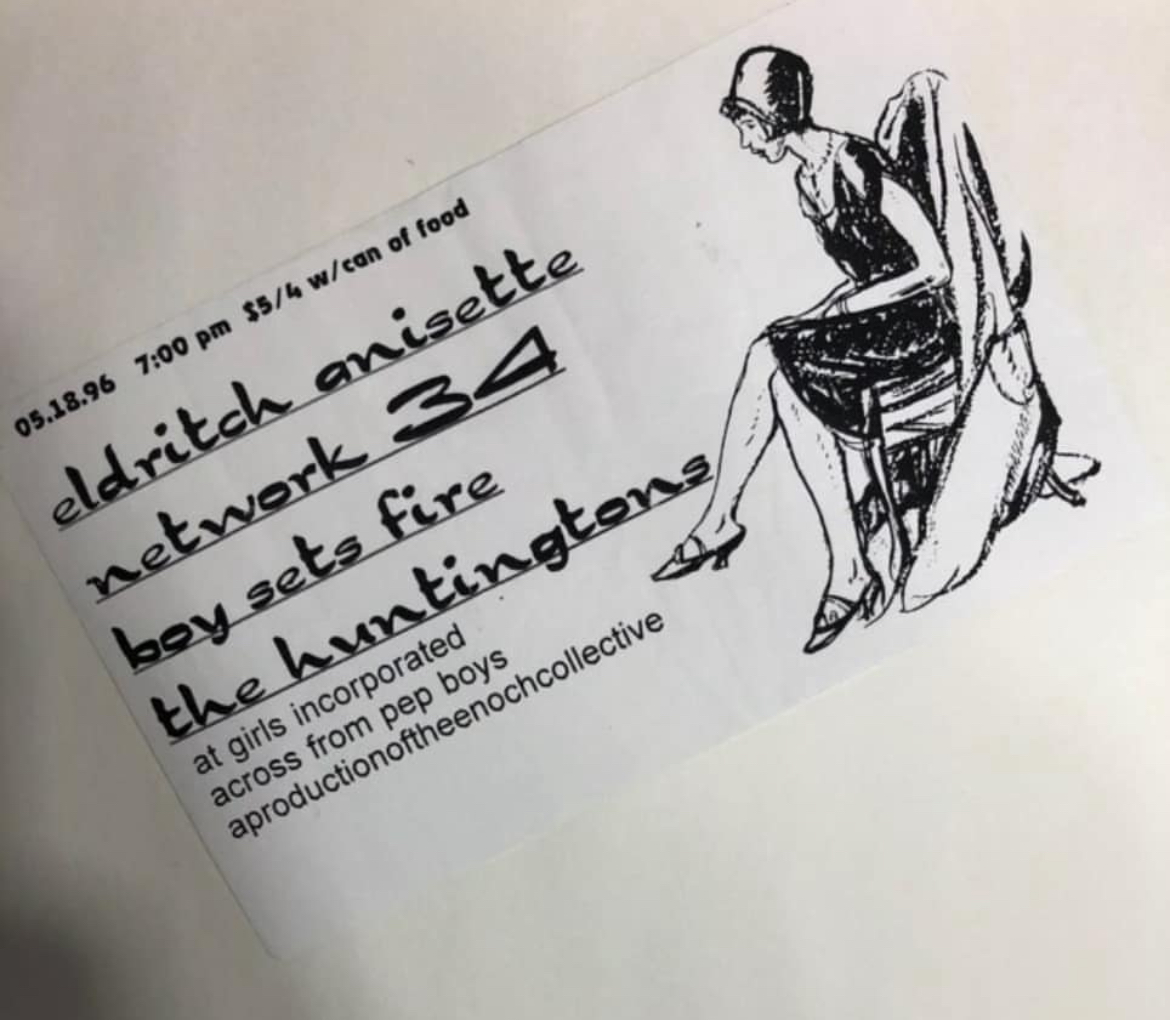 05.18.96 7:00 pm $5/4 w/can of food
eldritch anisette
network 34
boy sets fire
the huntingtons
at girls incorporated
across from pep boys
aproductionoftheenochcollective